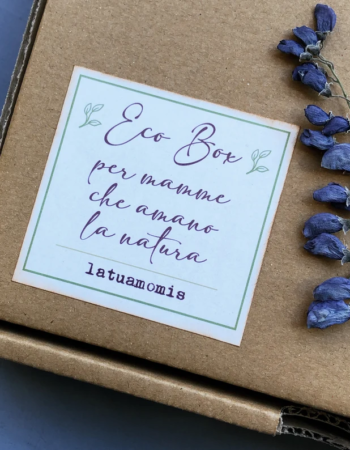 Eco Box
per mamme
che amano
la natura
latuamomis